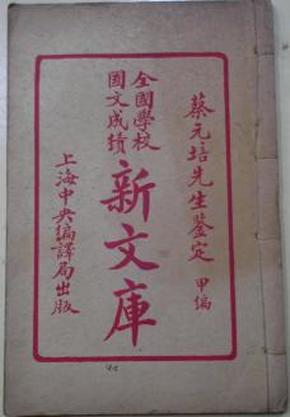 蔡元培先生鉴定 甲编
全國學校
國文成績
新文庫
上海中央编譯局出版